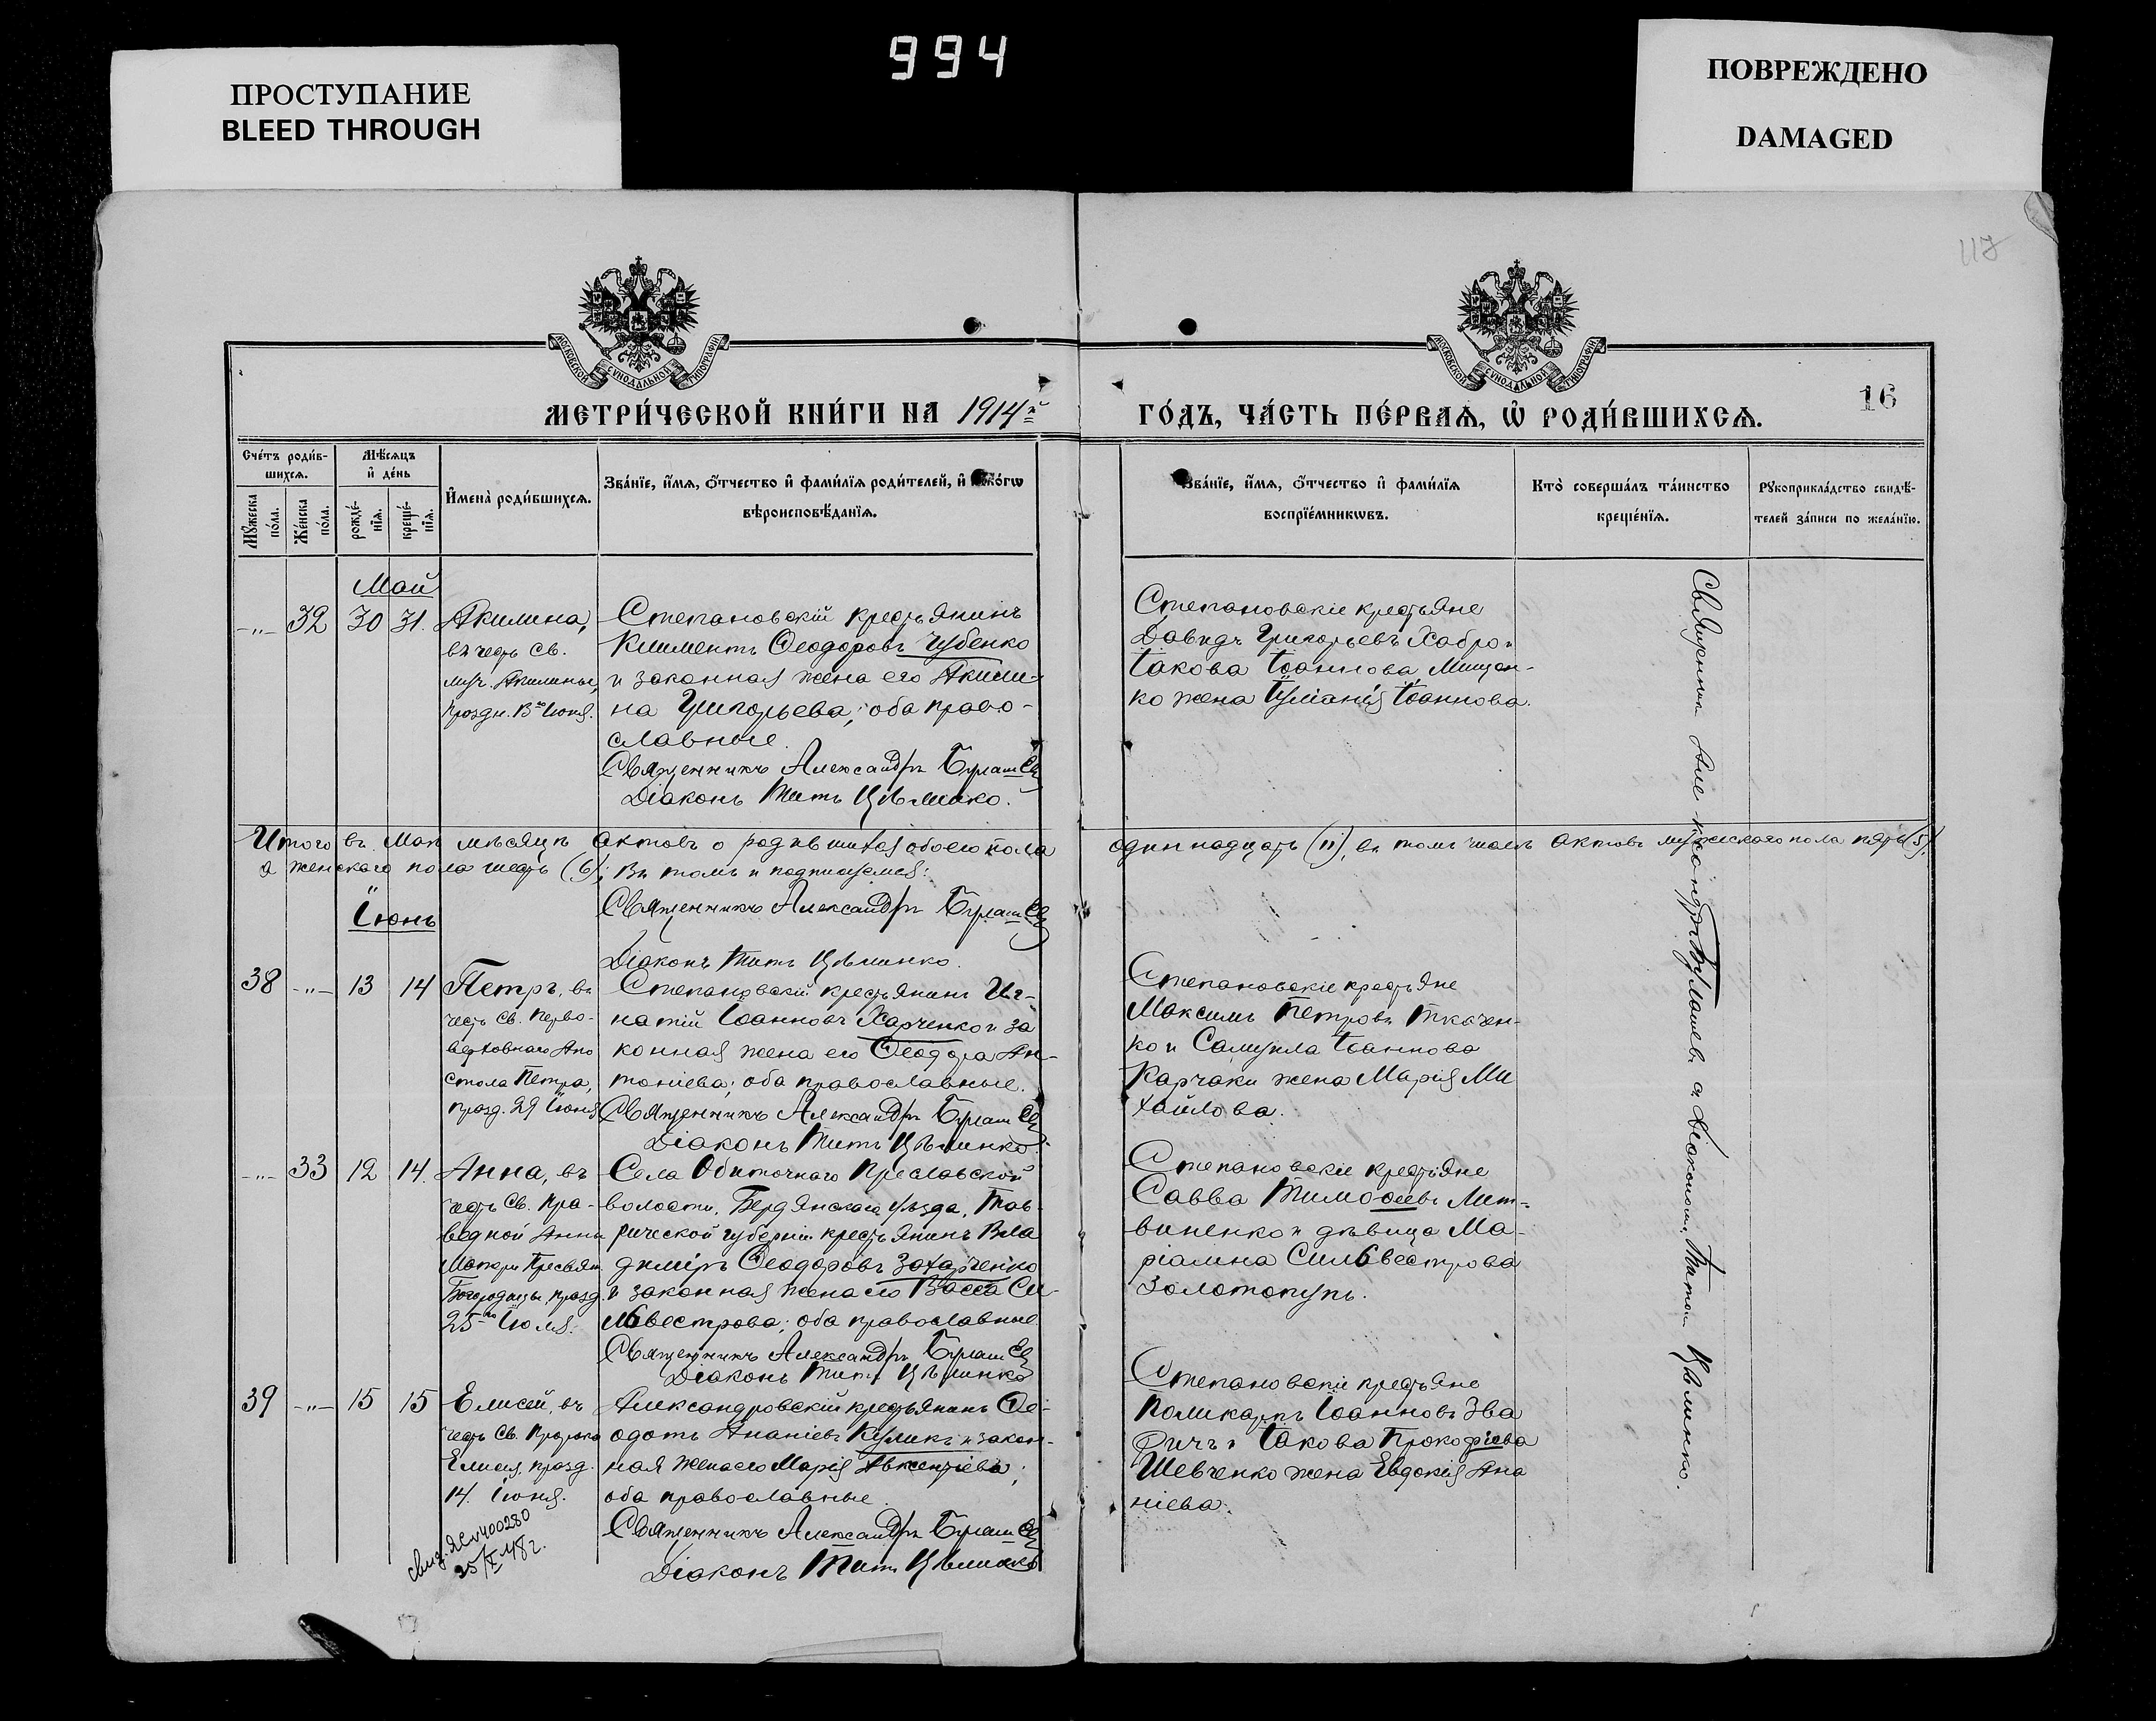 994
ПРОСТУПАНИЕ
BLEED THROUGH
ПОВРЕЖДЕНО
DAMAGED
117
МОСКОВСКОЙ СѴНОДАЛЬНОЙ ТИПОГРАФІИ
МОСКОВСКОЙ СѴНОДАЛЬНОЙ ТИПОГРАФІИ
16
МЕТРИ́ЧЕСКОЙ КНИ́ГИ НА 1914й
ГО́ДЪ, ЧА́СТЬ ПЕ́РВАѦ, Ѡ҆ РОДИ́ВШИХСѦ.
Сче́тъ роди́в-
шихсѧ.
Мꙋ́жеска по́ла.
Же́нска по́ла.
Мѣ́сѧцъ
и҆ де́нь
рожде́-
нїѧ.
креще́-
нїѧ.
И҆мена̀ роди́вшихсѧ.
Зва́нїе, и҆́мѧ, ѻ҆́тчество и҆ фами́лїѧ роди́телей, и҆ како́гѡ
вѣроисповѣ́данїѧ.
Зва́нїе, и҆́мѧ, ѻ҆́тчество и҆ фами́лїѧ
воспрїе́мникѡвъ.
Кто̀ соверша́лъ та́инство
креще́нїѧ.
Рꙋкоприкла́дство свидѣ́-
телей за́писи по жела́нїю.
Май
-"- 32 30 31.
Акилина,
въ честь Св.
муч. Акилины,
праздн. 13го Іюня.
Степановскій крестьянинъ
Климентъ Ѳеодоровъ Чубенко
и законная жена его Акили-
на Григорьева; оба право-
славные.
Священникъ Александръ Буглашевъ
Діаконъ Титъ Цѣлинко.
Степановскіе крестьяне
Давидъ Григорьевъ Хабро и
Іакова Іоаннова Мищен-
ко жена Іуліанія Іоаннова.
Итого въ Маѣ мѣсяцѣ актовъ о родившихся обоего пола одиннадцать (11), въ томъ числѣ актовъ мужескаго пола пять (5),
а женскаго пола шесть (6); въ томъ и подписуемся:
Священникъ Александръ Буглашевъ
Діаконъ Титъ Цѣлинко.
Іюнь
38 -"- 13 14
Петръ, въ
честь Св. Перво-
верховнаго Апо
стола Петра,
празд. 29 Іюня
Степановскій крестьянинъ Иг-
натій Іоанновъ Харченко и за
конная жена его Ѳеодора Ан-
тоніева; оба православные.
Священникъ Александръ Буглашевъ
Діаконъ Титъ Цѣлинко.
Степановскіе крестьяне
Максимъ Петровъ Ткачен-
ко и Самуила Іоаннова
Карчаки жена Марія Ми
хайлова.
-"- 33 12 14.
Анна, въ
честь Св. Пра-
ведной Анны
Матери Пресвят.
Богородицы, празд.
25го Іюля.
Села Обиточнаго Преславской
волости, Бердянскаго уѣзда, Тав-
рической губерніи крестьянинъ Вла
диміръ Ѳеодоровъ Захарченко
и законная жена его Васса Си-
львестрова; оба православные.
Священникъ Александръ Буглашевъ
Діаконъ Титъ Цѣлинко
Степановскіе крестьяне
Савва Тимоѳеевъ Лит-
виненко и дѣвица Ма-
ріамна Сильвестрова
Золотопупъ.
39 -"- 15 15
Елисей, въ
честь Св. Пророка
Елисея, празд.
14. Іюня.
Александровскій крестьянинъ Ѳе-
одотъ Ананіевъ Куликъ и закон-
ная жена его Марія Авксентіева;
оба православные.
Священникъ Александръ Буглашевъ
Діаконъ Титъ Цѣлинко
Степановскіе крестьяне
Поликарпъ Іоанновъ Зва
ричъ и Іакова Прокофіева
Шевченко жена Евдокія Ана
ніева.
Священникъ Александръ Буглашевъ съ Діакономъ Титомъ Цѣлинко.
400280
25/X 48 г.